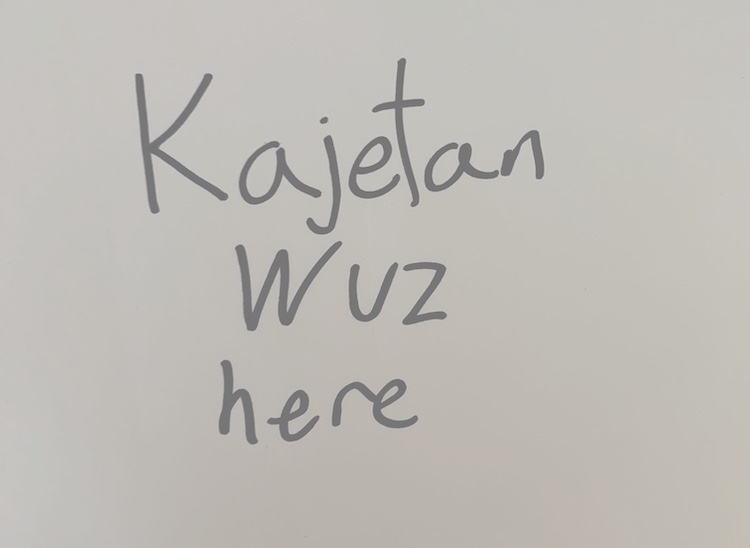 Kajetan
Wuz
here